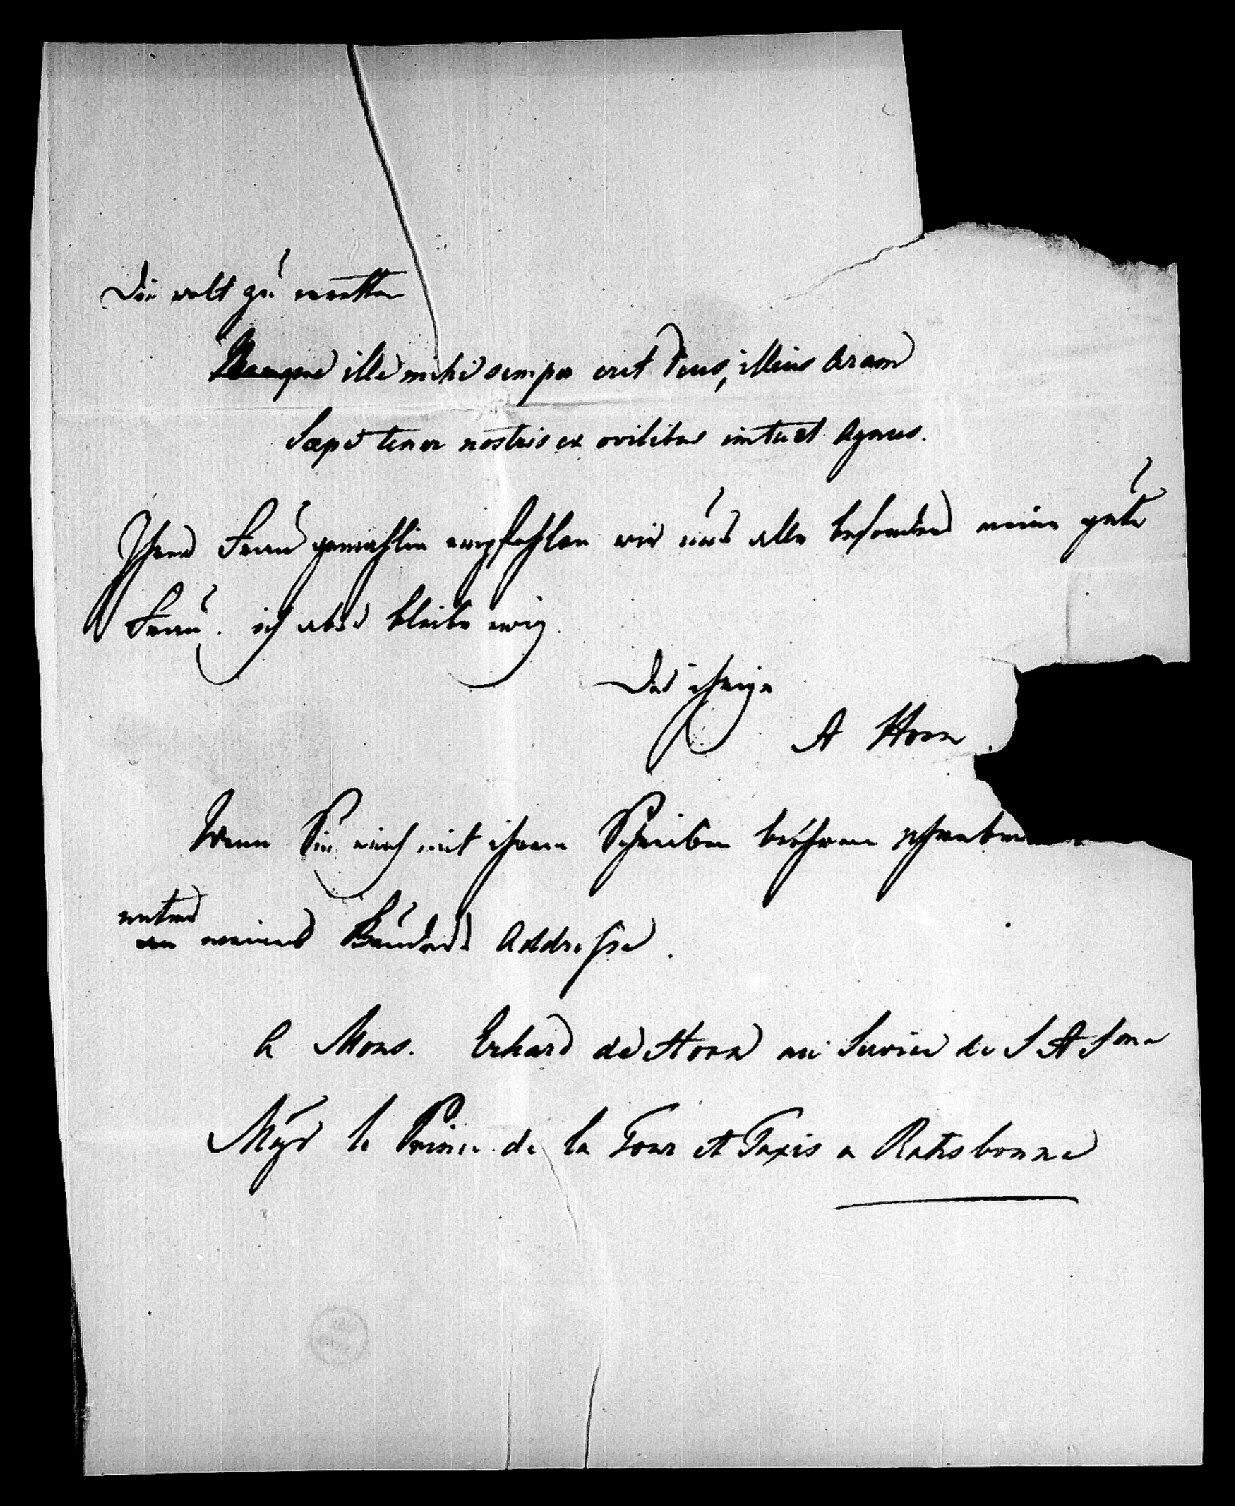 Die welt zu
Namque ille mihi semper erit Deus, illius Aram
Sæpe tener nostris ex ovilibus imbuet Agnus.
Ihrer Frau gemahlin empfehlen wir uns alle besonders meine gute
Frau. ich aber bleibe ewig.
Der ihrige
A Horn
Wenn Sie mich mit ihrem Schreiben beehren
unter meines Bruders Addresse.
A Mons. Erhard de Horn au Service de S A Sme
Mgr le Prince de la Tour et Taxis a Ratisbonne